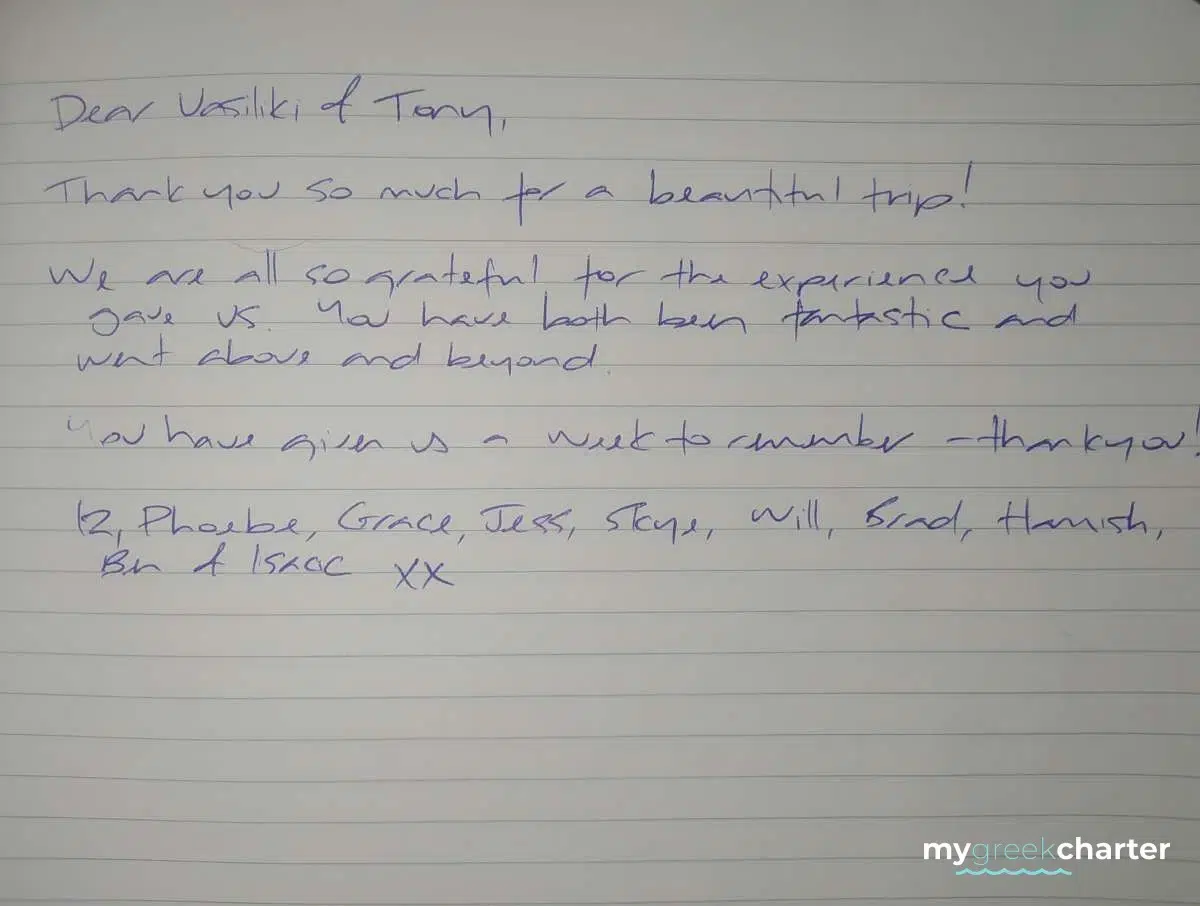 Dear Vasiliki & Tony,
Thank you so much for a beautiful trip!
We are all so grateful for the experience you
gave us. You have both been fantastic and
went above and beyond.
You have given us a week to remember - thankyou!
Phoebe, Grace, Jess, Skye, Will, Brad, Hamish,
Ben & Isaac xx
mygreekcharter